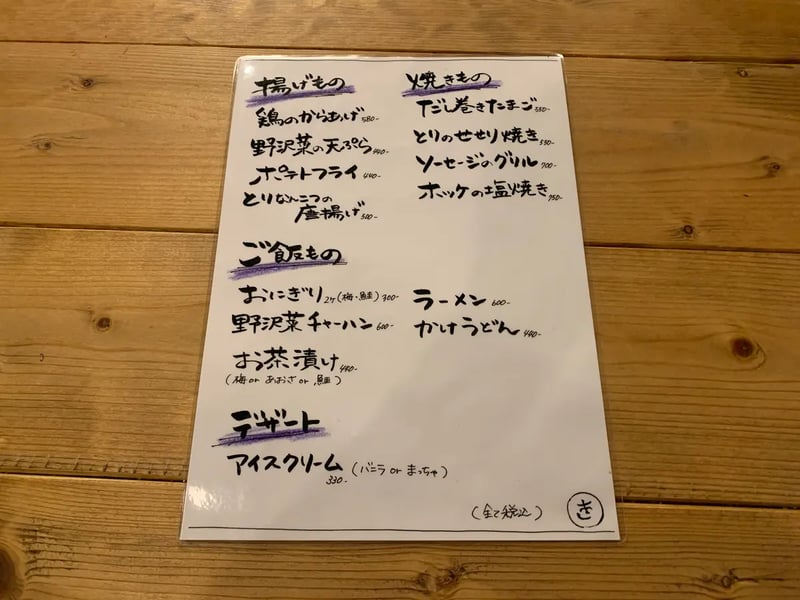 揚げもの
鶏のからあげ 580-
野沢菜の天ぷら 440-
ポテトフライ 440-
とりなんこつの
唐揚げ 500-
焼きもの
だし巻きたまご 550-
とりのせせり焼き 550-
ソーセージのグリル 700-
ホッケの塩焼き 950-
ご飯もの
おにぎり 2ケ(梅・鮭) 300-
野沢菜チャーハン 600-
お茶漬け 440-
(梅 or あおさ or 鮭)
ラーメン 600-
かけうどん 440-
デザート
アイスクリーム (バニラ or まっちゃ)
330-
(全て税込)
き